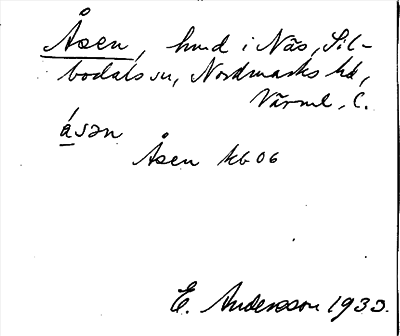 Åsen, hmd i Näs, Sil-
bodals sn, Nordmarks hd,
Värml. l.
åsən
Åsen kb 06
E. Andersson 1933.